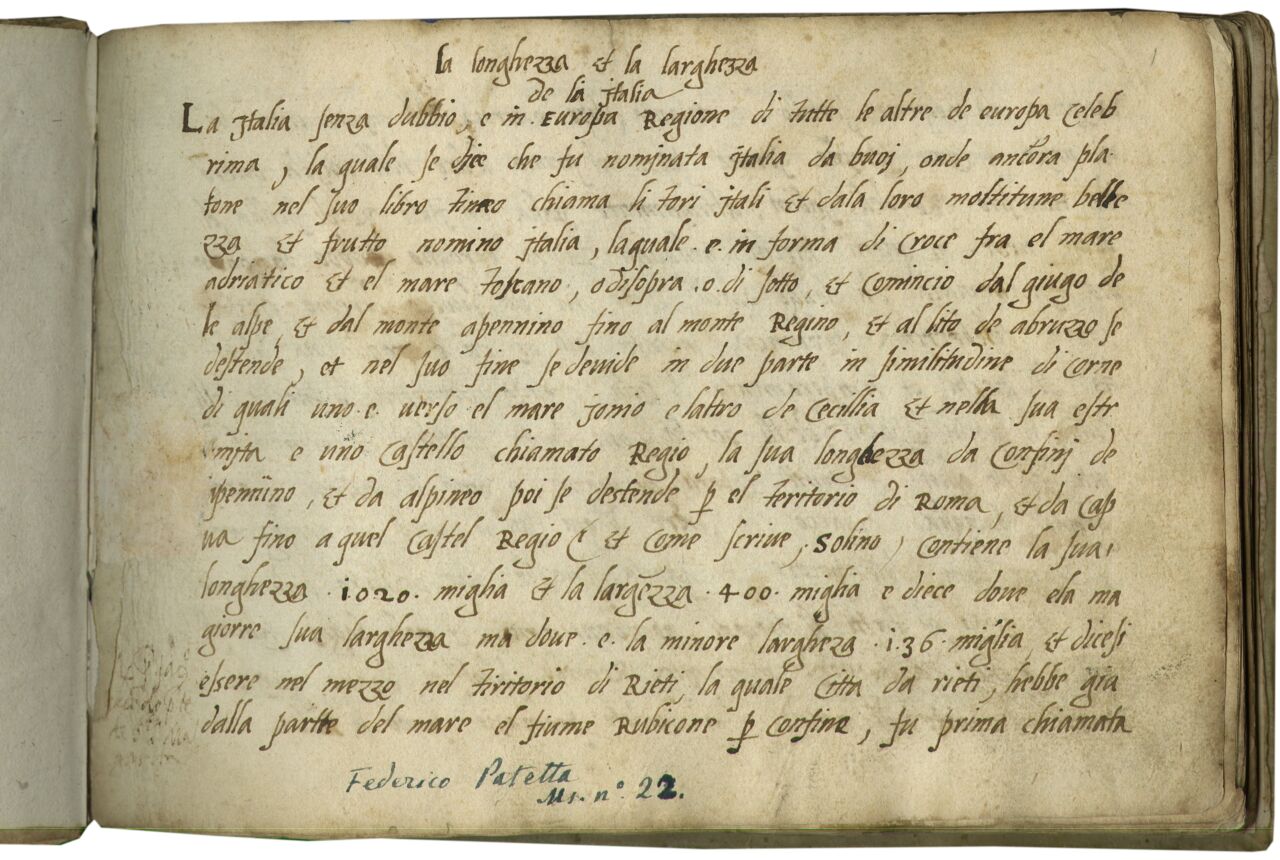 1
la longhezza et la larghezza
de la jtalia
La jtalia senza dubbio, e in Europa Regione di tutte le altre de europa celeb
rima, la quale se dice che fu nominata jtalia da buoj, onde anchora pla
tone nel suo libro timeo chiama li tori jtali et dala loro moltitune belle
zza et frutto nomino jtalia, laquale .e. in forma di croce fra el mare
adriatico et el mare toscano, o disopra .o. di sotto, et comincio dal giugo de
le alpe, et dal monte apennino fino al monte Regino, et al lito de abruzzo se
destende, et nel suo fine se devide in due parte in similitudine di corne
di quali uno .e. verso el mare jonio e laltro de Cecillia et nella sua estr
e uno Castello chiamato Regio, la sua longhezza da Confinj de
et da alpineo poi se destende p el teritorio di Roma, et da Cap
ua fino a quel Castel Regio (et Come scriue, Solino) Contiene la sua
longhezza .1020. miglia et la largezza .400. miglia e diece doue ela ma
giorre sua larghezza ma doue .e. la minore largheza .136. miglia, et dicesi
essere nel mezzo nel tiritorio di Rieti, la quale Citta da rieti, hebbe gia
dalla partte del mare el fiume Rubicone p Confine, fu prima chiamata
Federico Patetta
Ms. n°. 22.